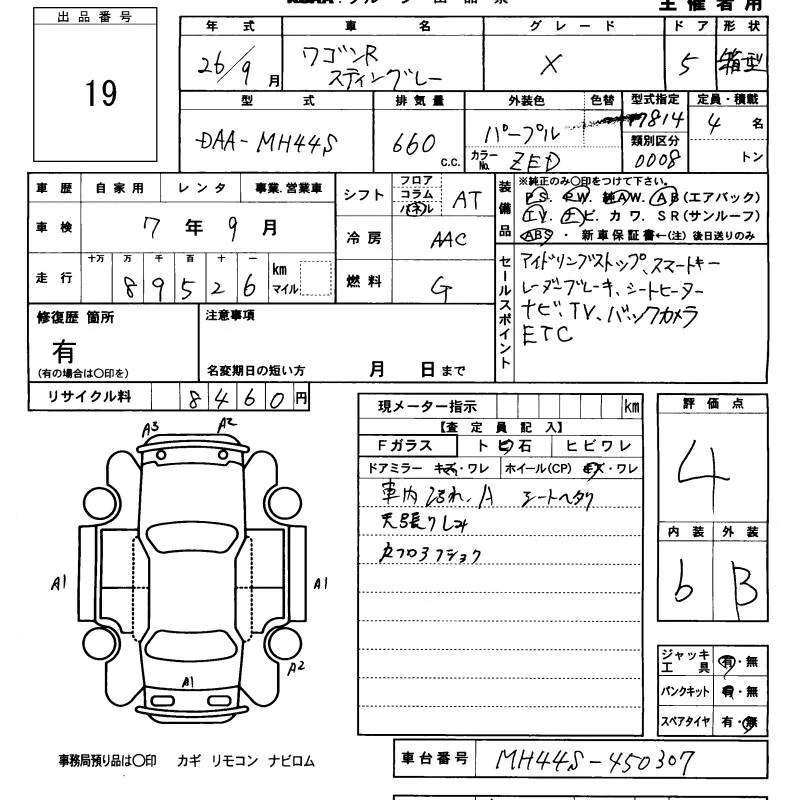 出品番号
19
主催者用
年式 車名 グレード ドア 形状
26/9月 ワゴンR スティングレー X 5 箱型
型式 排気量 外装色 色替 型式指定 定員・積載
DAA-MH44S 660 C.C. パープル 17814 4名
カラーNo. ZED 類別区分 0008 トン
車歴 自家用 レンタ 事業.営業車
シフト フロア コラム パネル AT
車検 7年9月
冷房 AAC
走行 十万 万 千 百 十 一
8 9 5 2 6 km マイル
燃料 G
装備品 ※純正のみ○印をつけて下さい。
PS. PW. 純AW. AB(エアバック)
TV. ナビ. カワ. SR(サンルーフ)
ABS・新車保証書←(注)後日送りのみ
セールスポイント
アイドリングストップ、スマートキー
レーダーブレーキ、シートヒーター
ナビ、TV、バックカメラ
ETC
修復歴 箇所
有
(有の場合は○印を)
注意事項
名変期日の短い方 月 日まで
リサイクル料 8460円
現メーター指示 km
【査定員記入】
Fガラス ト石 ヒビワレ
ドアミラー キズ・ワレ ホイール(CP) キズ・ワレ
車内 A シートヘタリ
天張りシミ
評価点
4
内装 外装
b B
A3 A2
A1 A1
A2
A1
ジャッキ工具 有・無
パンクキット 有・無
スペアタイヤ 有・無
事務局預り品は○印 カギ リモコン ナビロム
車台番号 MH44S-450307